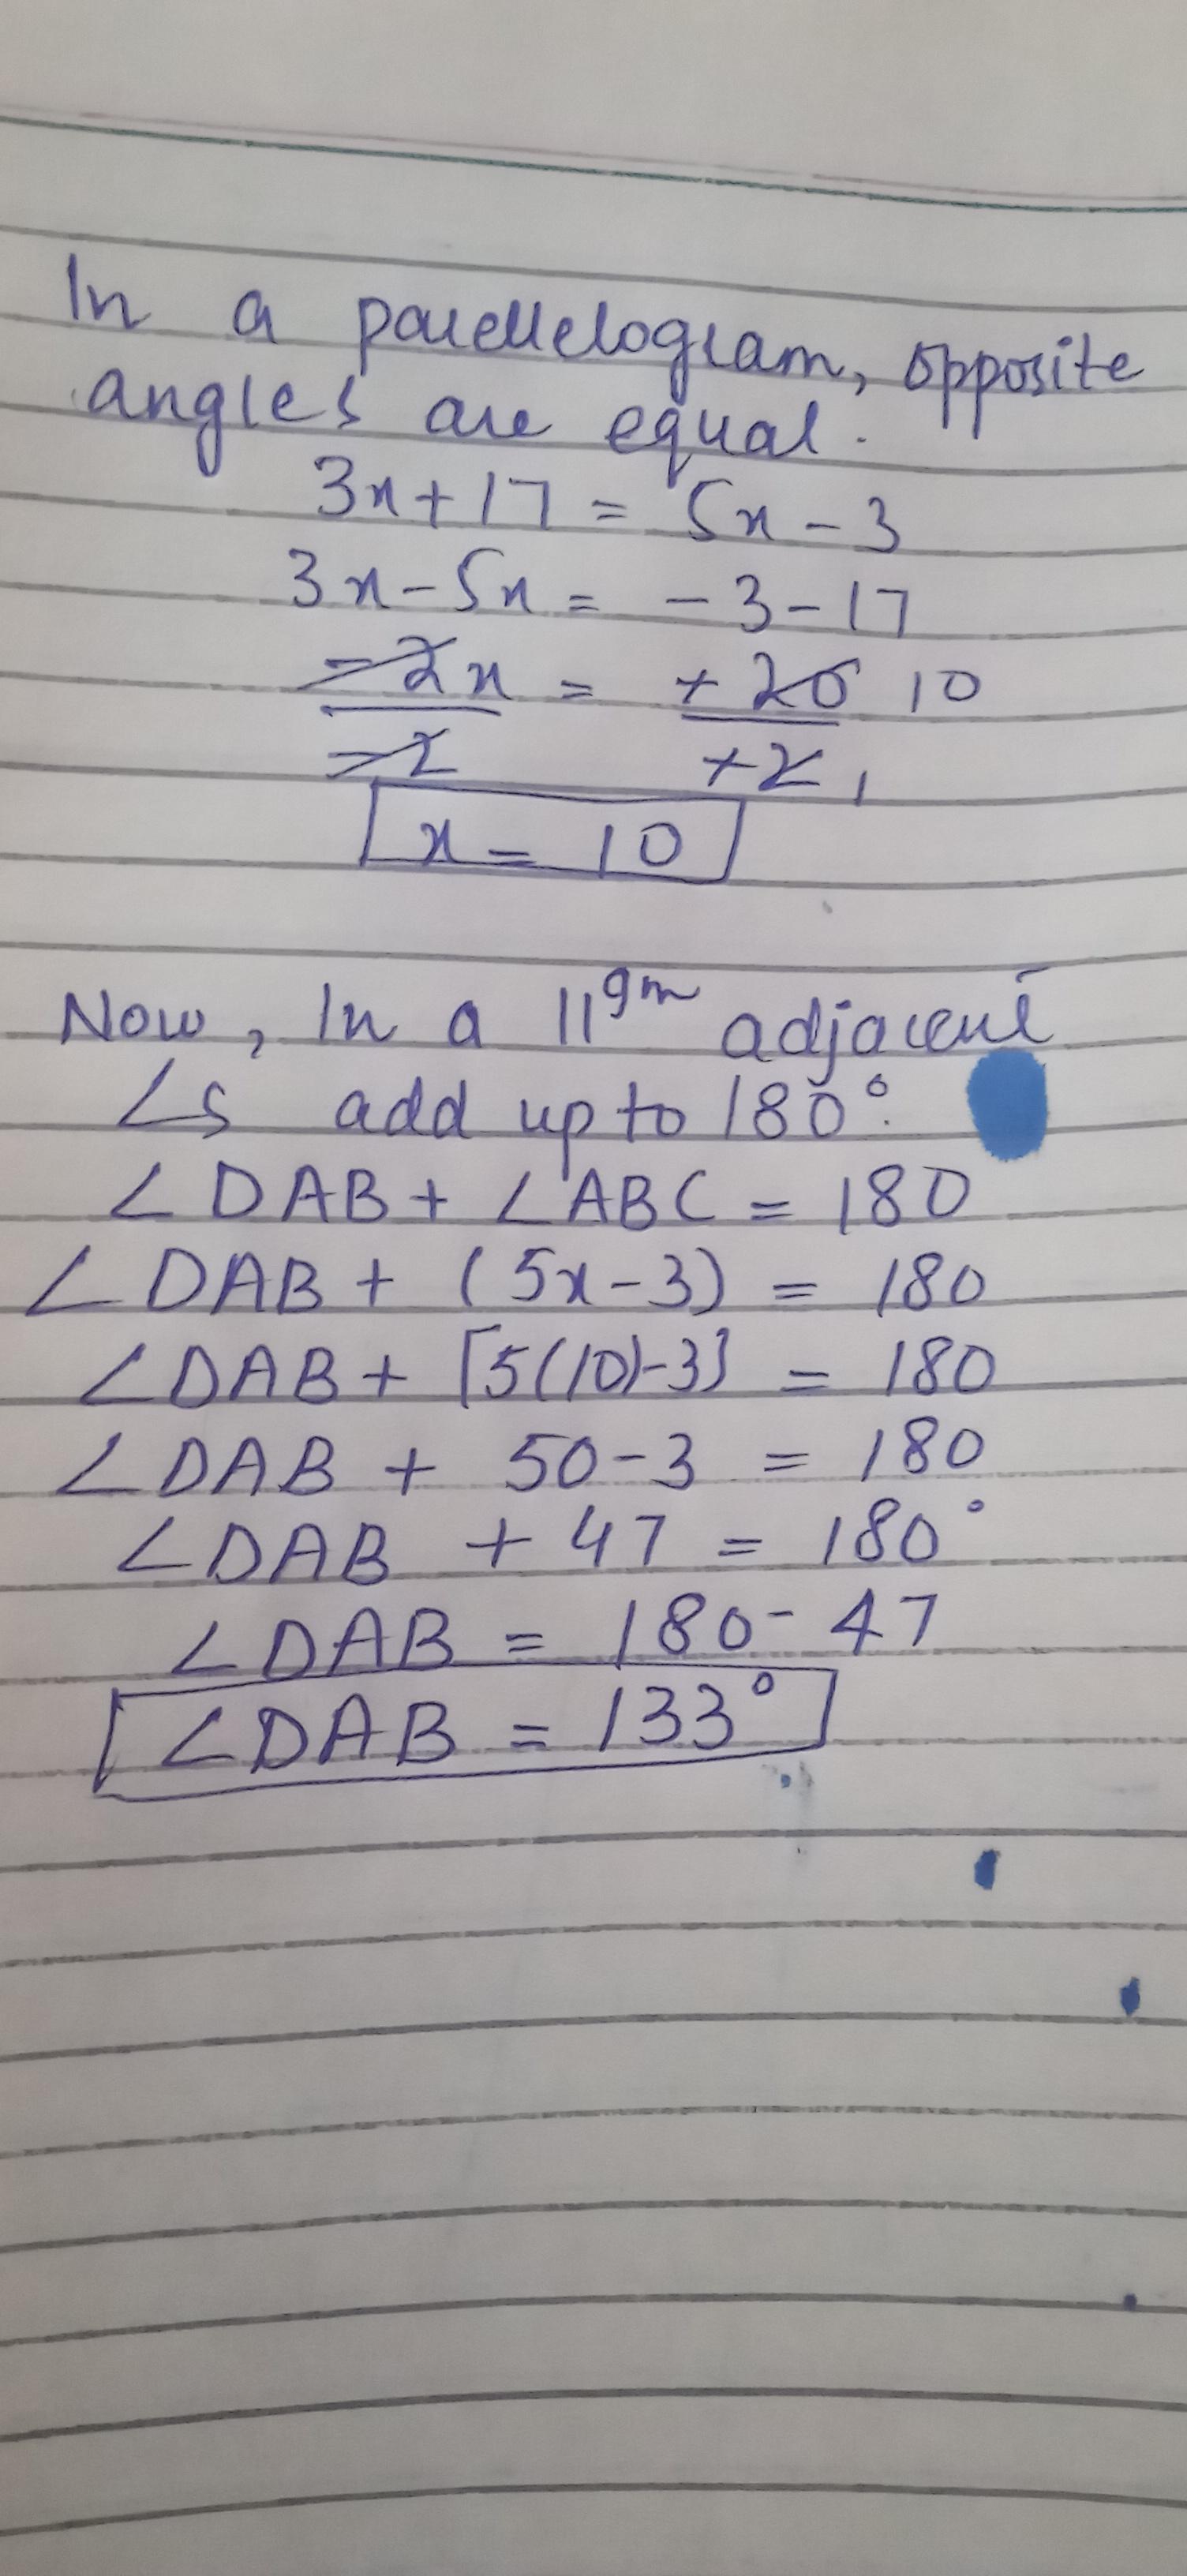 In a parellelogram, opposite
angles are equal.
3x+17 = 5x-3
3x-5x = -3-17
-2x = +20 10
-2 +2 1
x = 10
Now, In a ||gm adjacent
∠s add up to 180°.
∠DAB + ∠ABC = 180
∠DAB + (5x-3) = 180
∠DAB + [5(10)-3] = 180
∠DAB + 50-3 = 180
∠DAB + 47 = 180°
∠DAB = 180-47
∠DAB = 133°